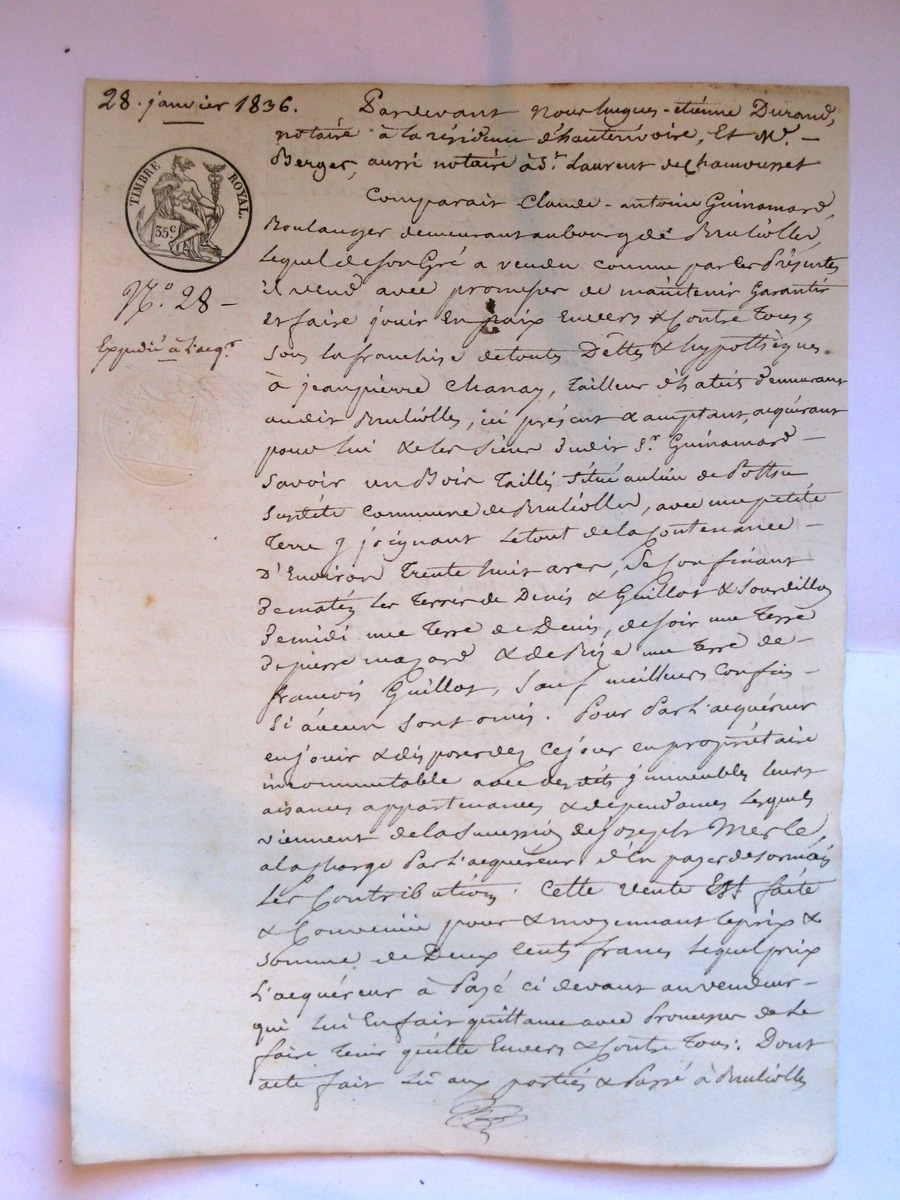 28. janvier 1836. Pardevant nous hugues-étiénne Durand,
notaire à la résidence d'hauterivoire, Et Mr.
Berger, aussi notaire à St. Laurent de Chamousset
TIMBRE ROYAL.
35c
No. 28
Expédié à L'acqr.
Comparait Claude-antoine Guinamard,
Boulanger demeurant au bourg de Brulliolles,
Lequel de son Gré a vendu comme par les Présentes
il vend avec promesse de maintenir Garantir
et faire jouir En paix Envers & Contre Tous
sous la franchise de toutes Dettes & hypothèques
à jean pierre Chanay, Tailleur d'habits demeurant
audit Brulliolles, ici présent & acceptant, acquérant
pour lui & les siens dudit Sr. Guinamard
Savoir un Bois Taillis situé au lieu de
susdite Commune de Brulliolles, avec une petite
Terre y joignant Le tout de la Contenance
D'Environ Trente huit ares, Se Confinant
De matin Les Terres de Denis & Guillot & Sourdillon
De midi une Terre de Denis, de soir une Terre
De pierre mazard & de bize une Terre de
francois Guillot, Sauf meilleurs Confins
Si aucun sont omis. Pour Par L'acquéreur
en jouir & disposer dès ce jour en propriétaire
incommutable avec desdits immeubles leurs
aisances appartenances & dépendances Lesquels
viennent de la succession de joseph Merle,
a la charge Par L'acquéreur d'En payer désormais
Les Contributions. Cette vente Est faite
& Convenue pour & moyennant le prix &
somme de Deux Cents francs Lequel prix
L'acquéreur à Payé ci devant au vendeur
qui Lui En fait quittance avec Promesse de Le
faire Tenir quitte Envers & Contre Tous. Dont
acte fait Lu aux parties & Passé à Brulliolles